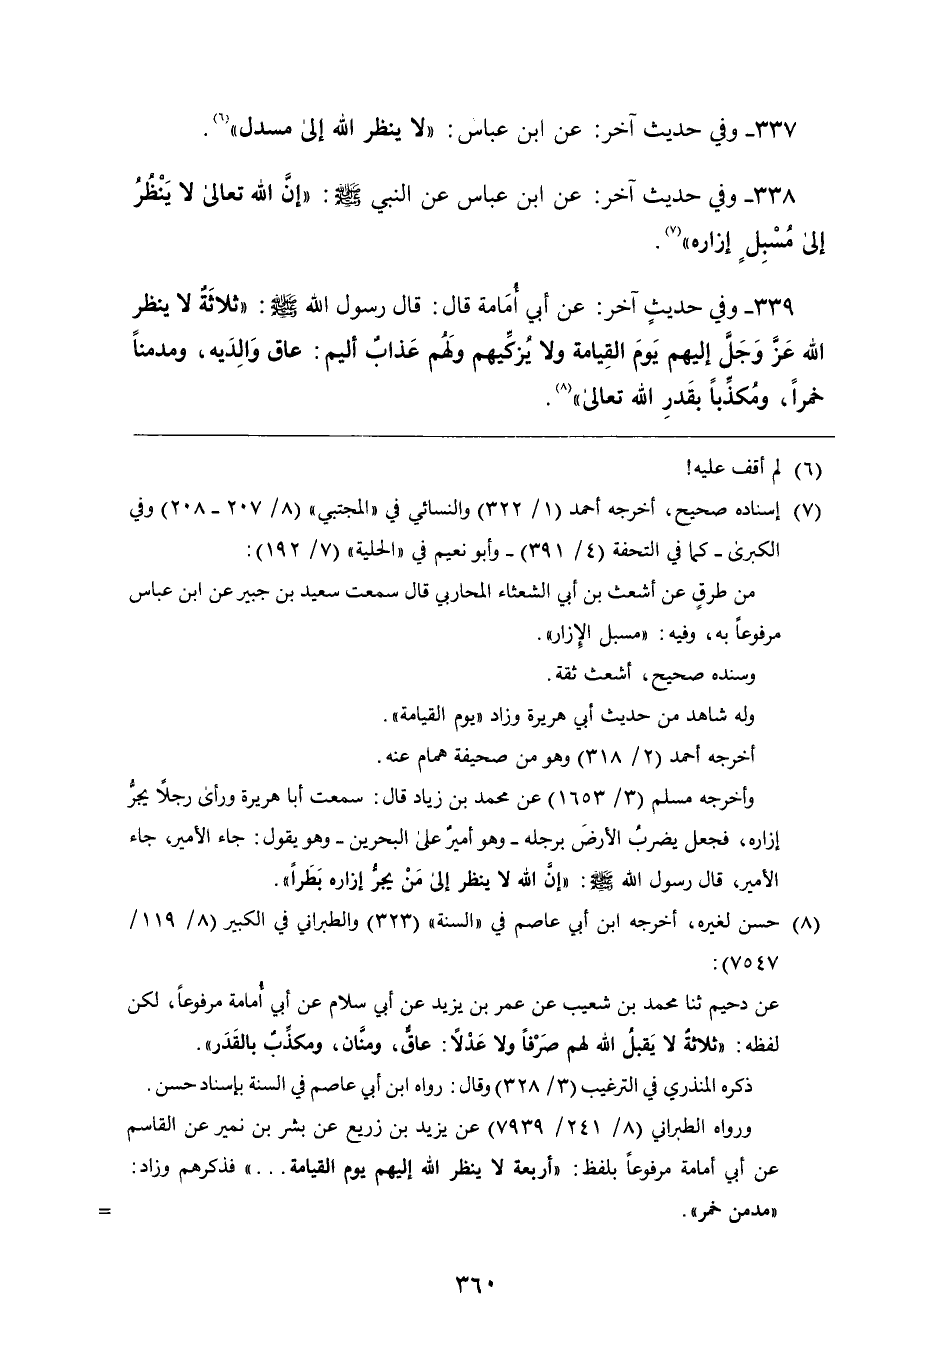 ٣٣٧ـ وفي حديث آخر: عن ابن عباس: «لا ينظر الله إلىٰ مسدل»(٦).
٣٣٨ـ وفي حديث آخر: عن ابن عباس عن النبي ﷺ: «إنَّ الله تعالىٰ لا يَنْظُرُ
إلىٰ مُسْبِلٍ إزاره»(٧).
٣٣٩ـ وفي حديثٍ آخر: عن أبي أُمَامة قال: قال رسول الله ﷺ: «ثلاثَةٌ لا ينظر
الله عَزَّ وَجَلَّ إليهم يَومَ القِيامة ولا يُزكِّيهم ولَهُم عَذابٌ أليم: عاق وَالِدَيه، ومدمناً
خمراً، ومُكذِّباً بقَدرِ الله تعالىٰ»(٨).
(٦) لم أقف عليه!
(٧) إسناده صحيح، أخرجه أحمد (١/ ٣٢٢) والنسائي في «المجتبي» (٨/ ٢٠٧ ـ ٢٠٨) وفي
الكبرىٰ ـ كما في التحفة (٤/ ٣٩١) ـ وأبو نعيم في «الحلية» (٧/ ١٩٢):
من طرقٍ عن أشعث بن أبي الشعثاء المحاربي قال سمعت سعيد بن جبير عن ابن عباس
مرفوعاً به، وفيه: «مسبل الإزار».
وسنده صحيح، أشعث ثقة.
وله شاهد من حديث أبي هريرة وزاد «يوم القيامة».
أخرجه أحمد (٢/ ٣١٨) وهو من صحيفة همام عنه.
وأخرجه مسلم (٣/ ١٦٥٣) عن محمد بن زياد قال: سمعت أبا هريرة ورأىٰ رجلًا يجرُّ
إزاره، فجعل يضربُ الأرضَ برجله ـ وهو أميرٌ علىٰ البحرين ـ وهو يقول: جاء الأمير، جاء
الأمير، قال رسول الله ﷺ: «إنَّ الله لا ينظر إلىٰ مَنْ يجرُّ إزاره بَطَراً».
(٨) حسن لغيره، أخرجه ابن أبي عاصم في «السنة» (٣٢٣) والطبراني في الكبير (٨/ ١١٩/
٧٥٤٧):
عن دحيم ثنا محمد بن شعيب عن عمر بن يزيد عن أبي سلام عن أبي أُمامة مرفوعاً، لكن
لفظه: «ثلاثةٌ لا يَقبلُ الله لهم صَرْفاً ولا عَدْلًا: عاقٌّ، ومنَّان، ومكذِّبٌ بالقَدَر».
ذكره المنذري في الترغيب (٣/ ٣٢٨) وقال: رواه ابن أبي عاصم في السنة بإسناد حسن.
ورواه الطبراني (٨/ ٢٤١/ ٧٩٣٩) عن يزيد بن زريع عن بشر بن نمير عن القاسم
عن أبي أمامة مرفوعاً بلفظ: «أربعة لا ينظر الله إليهم يوم القيامة...» فذكرهم وزاد:
«مدمن خمر». =
٣٦٠